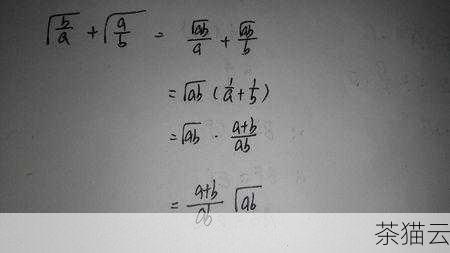 √(b/a) + √(a/b) = √ab/a + √ab/b
= √ab (1/a + 1/b)
= √ab · (a+b)/ab
= (a+b)/ab √ab
茶猫云